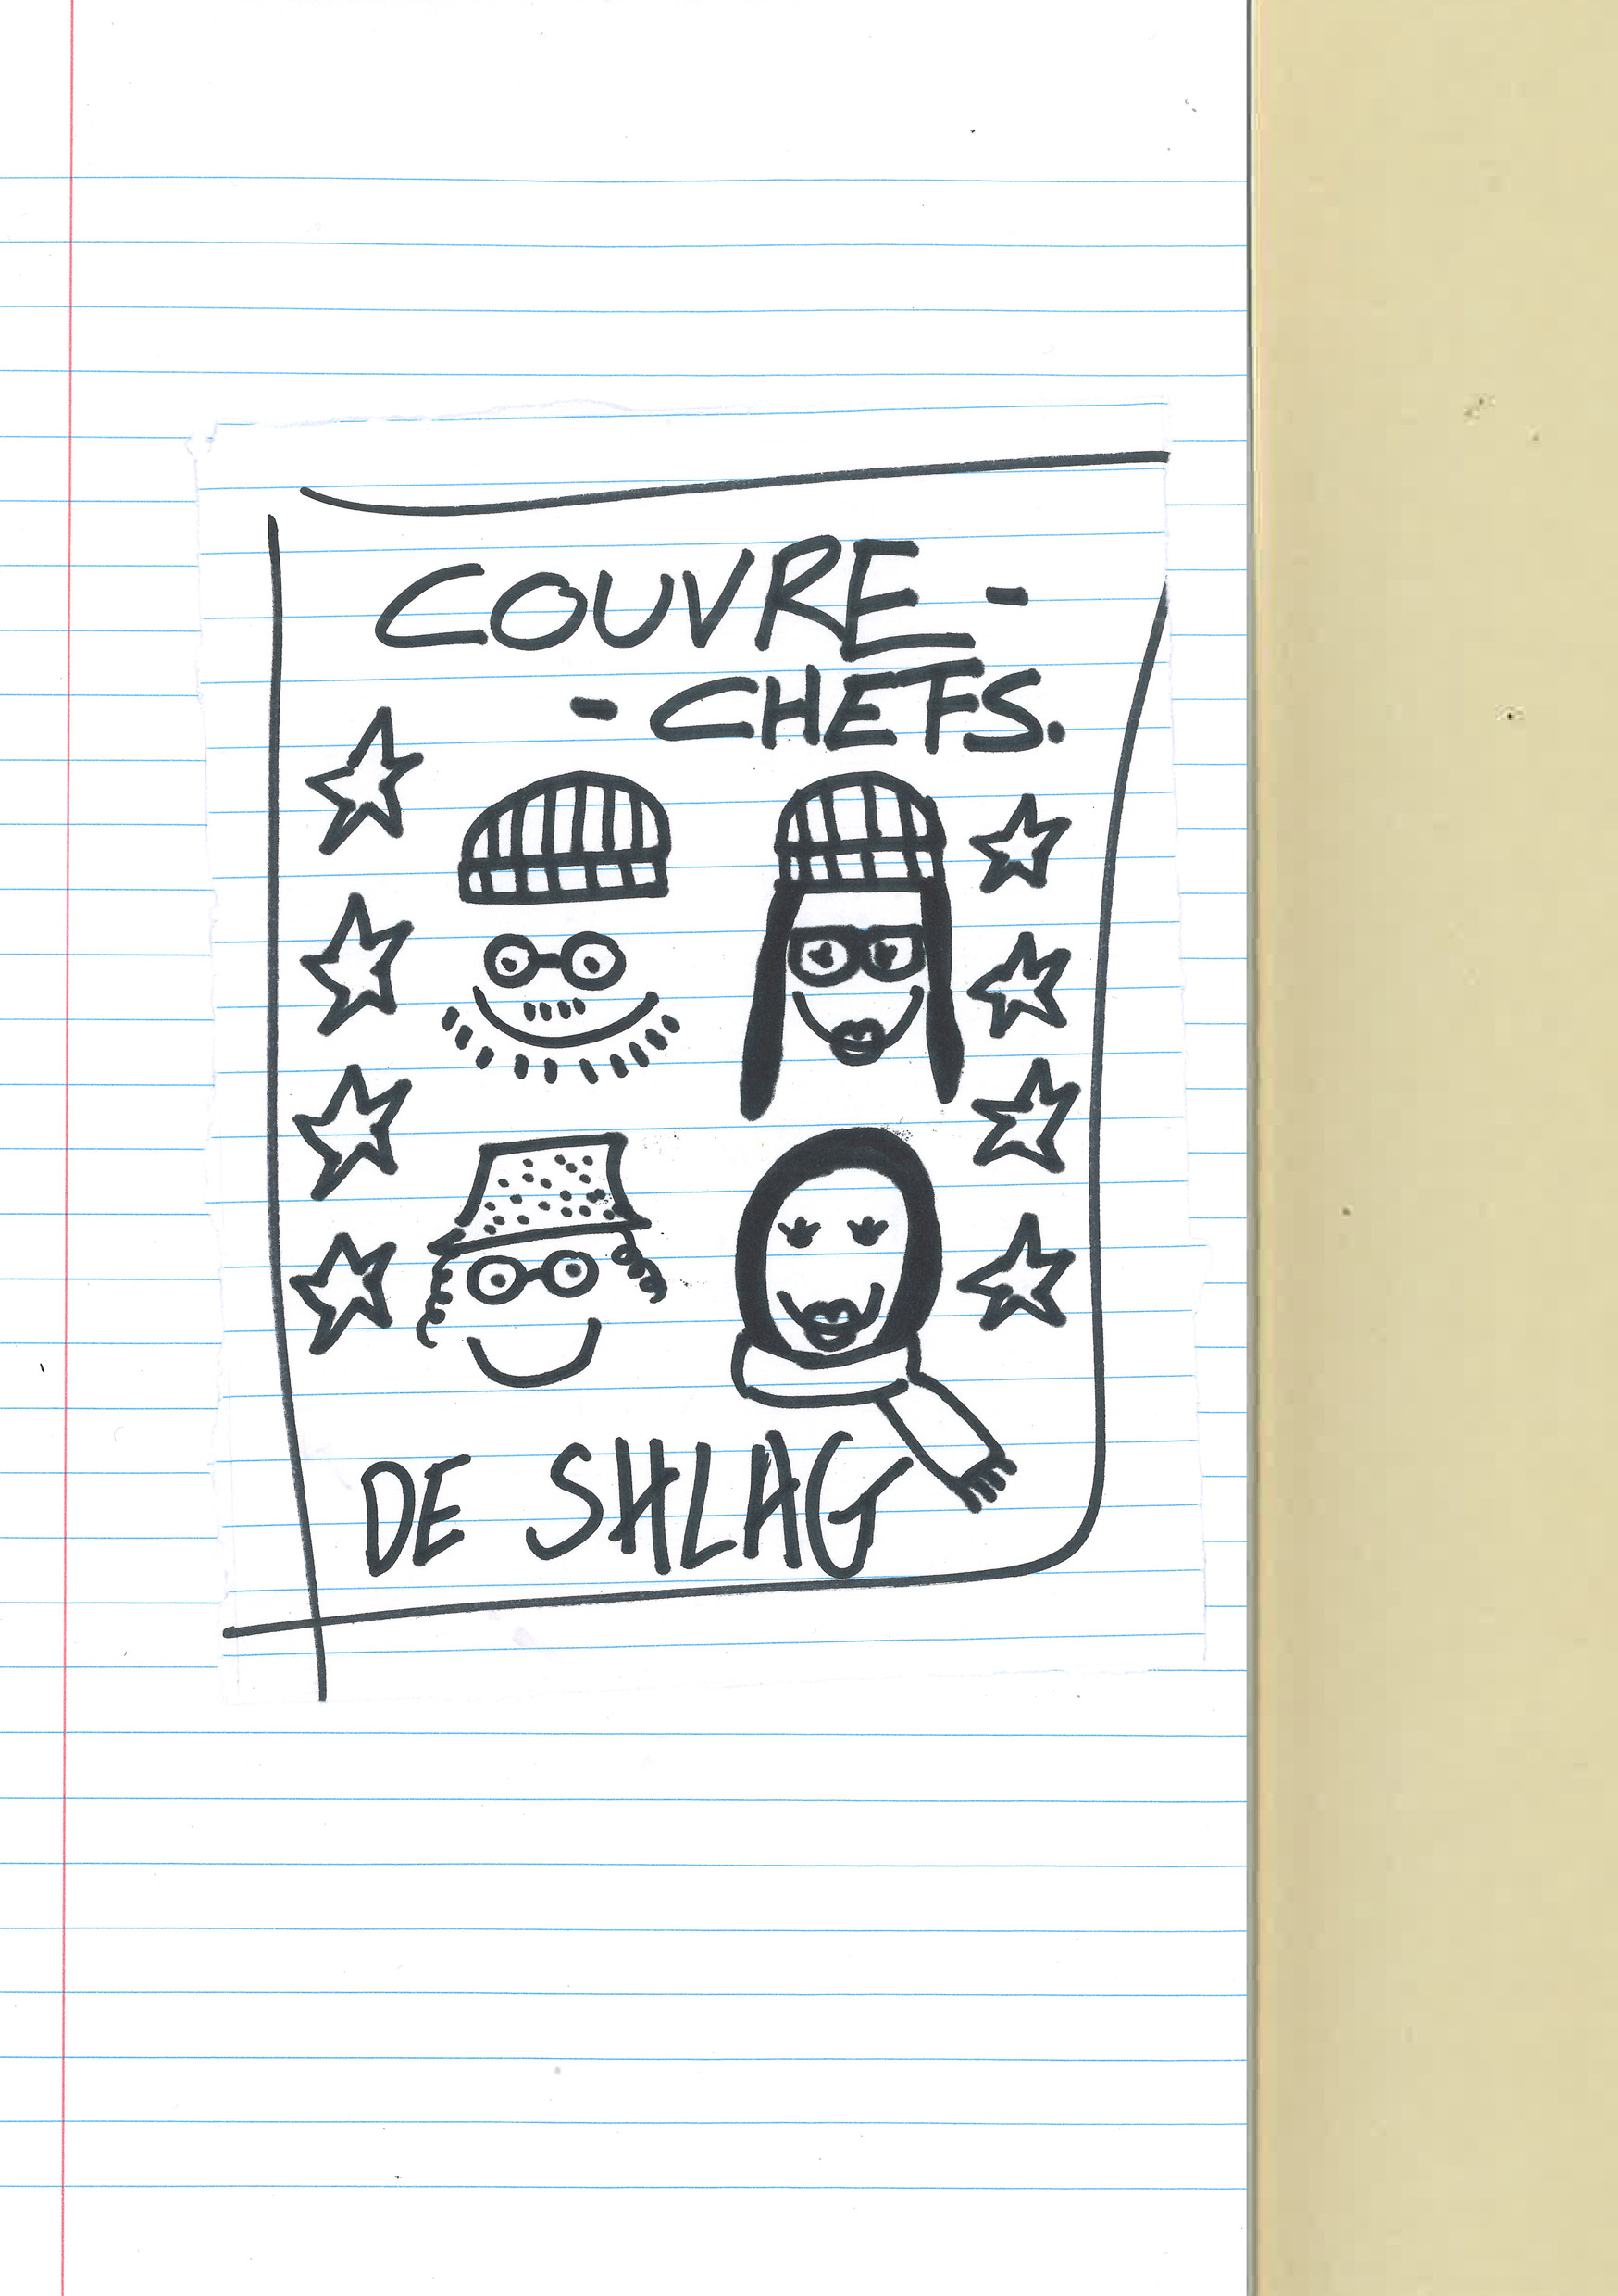 COUVRE -
- CHEFS.
DE SHLAG